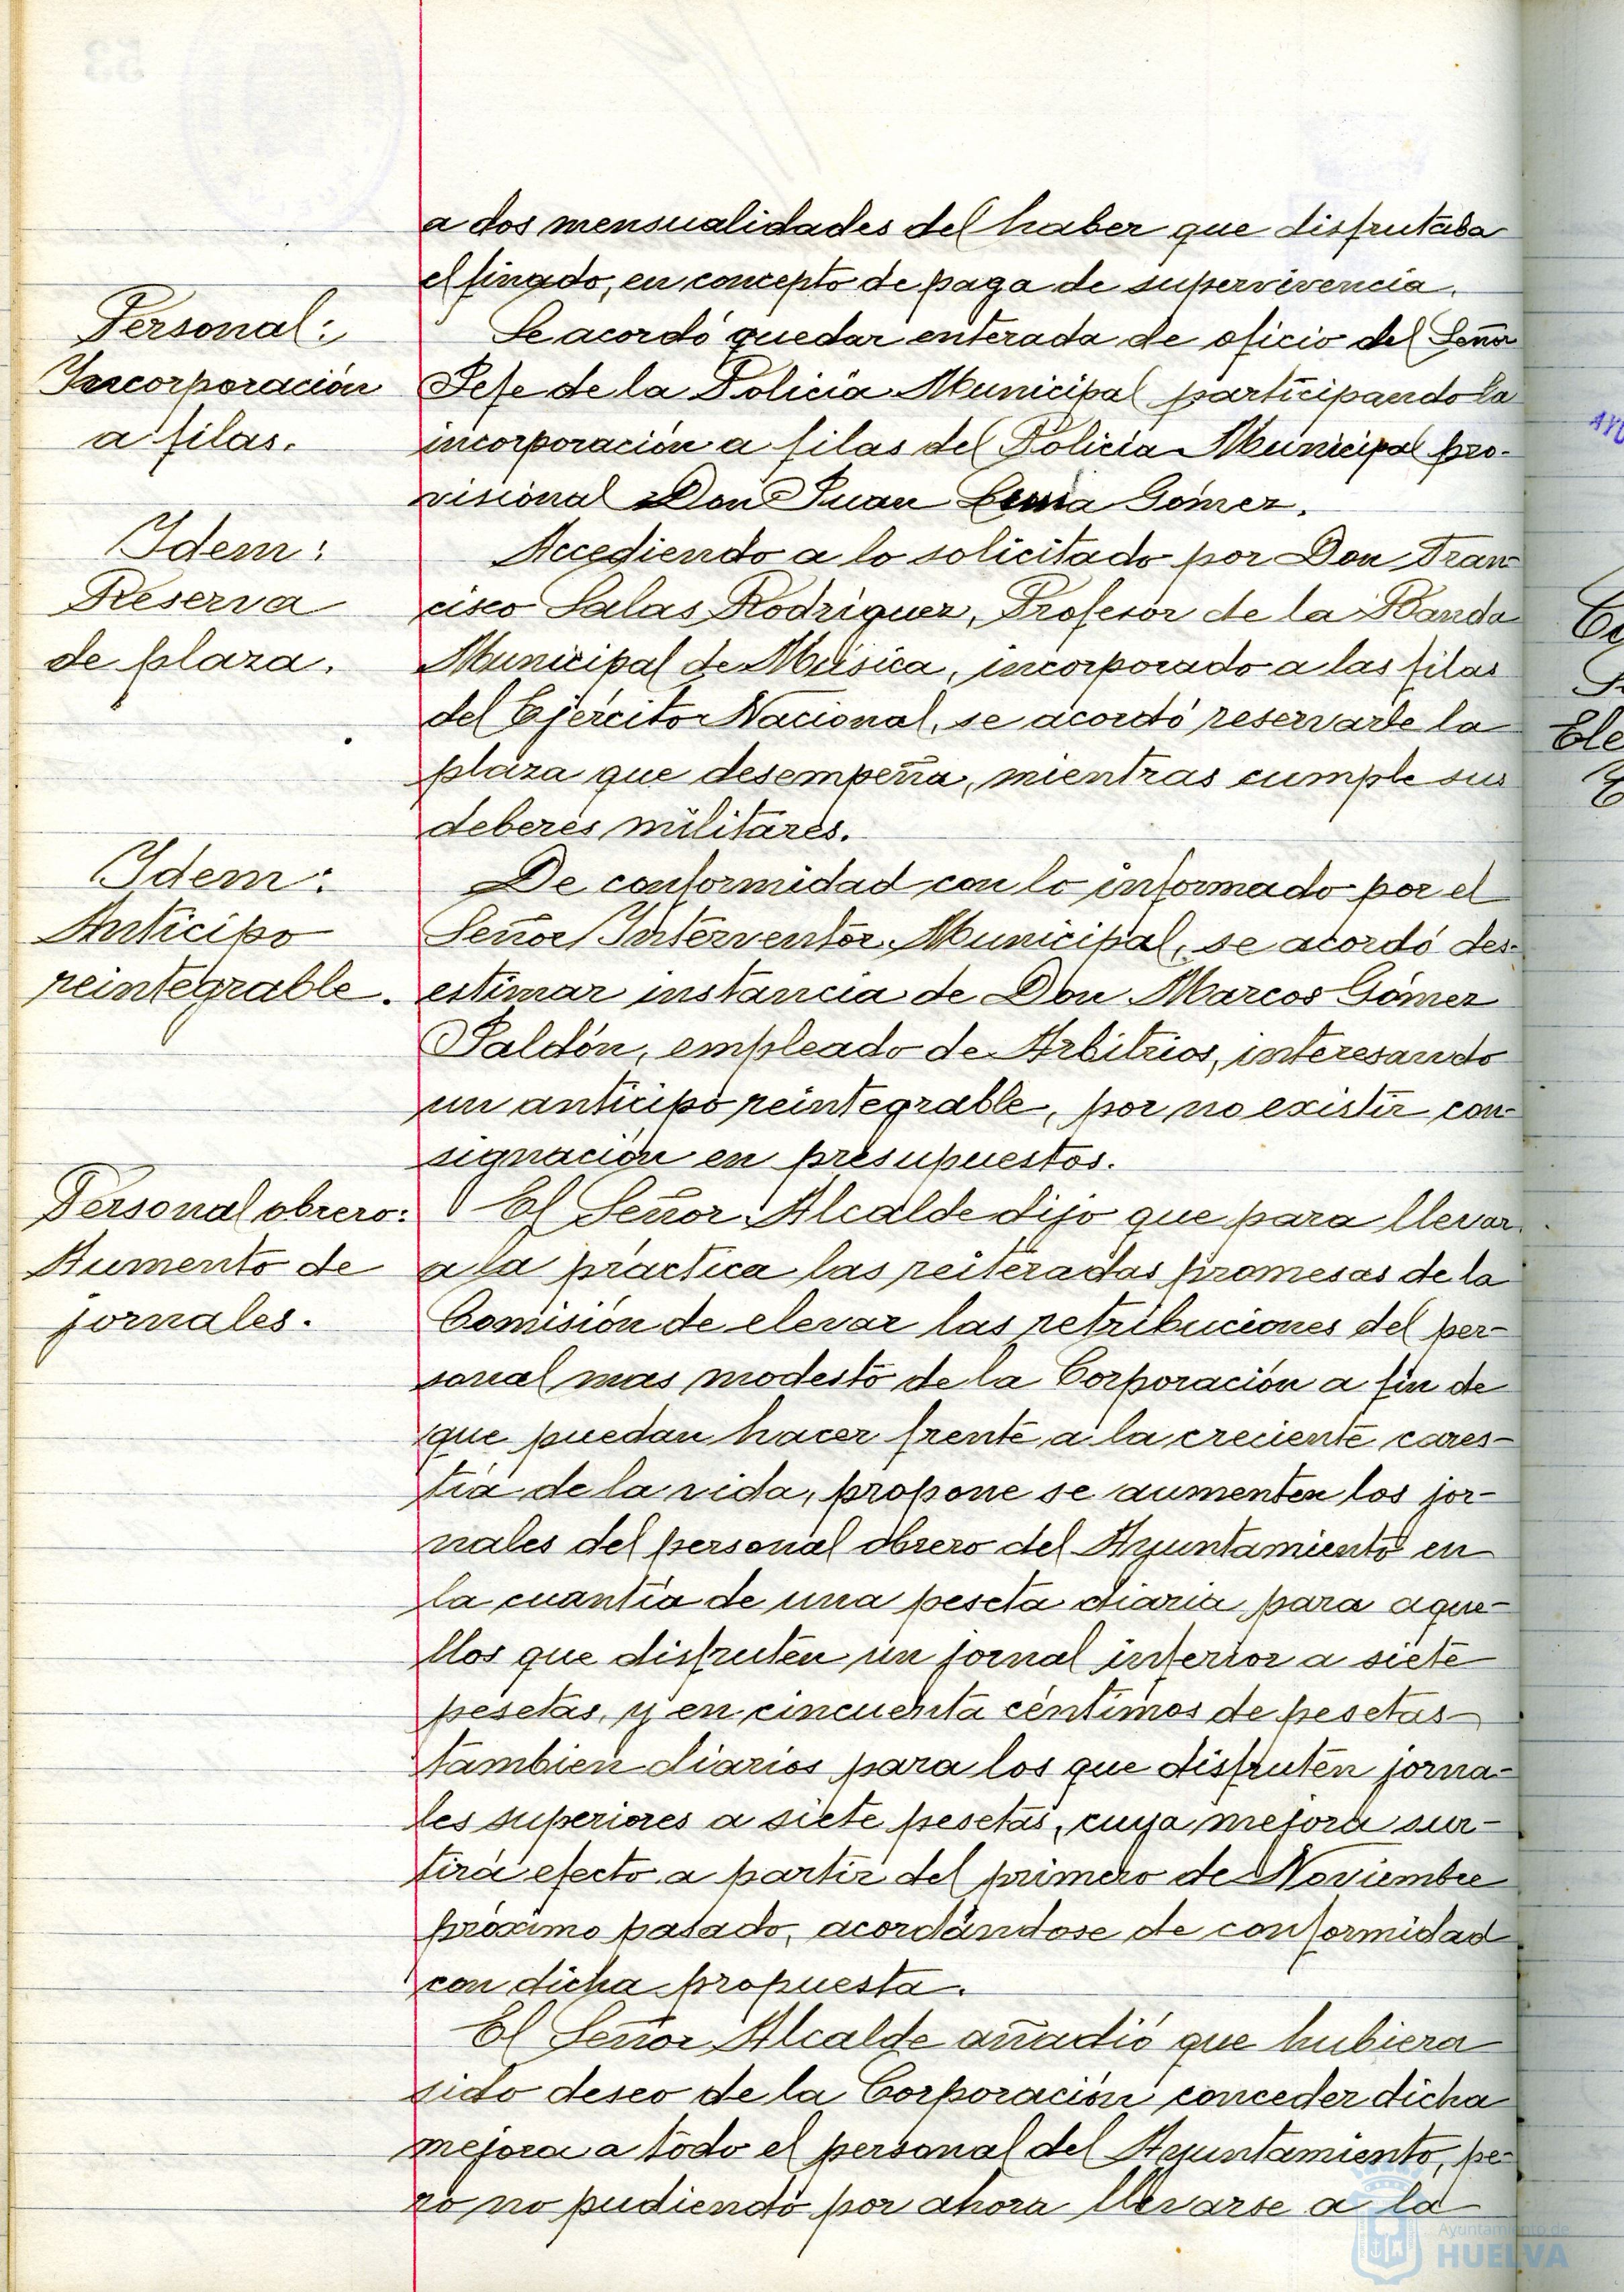 a dos mensualidades del haber que disfrutaba
el finado, en concepto de paga de supervivencia.
Personal:
Incorporación
a filas.
Se acordó quedar enterada de oficio del Señor
Jefe de la Policía Municipal participando la
incorporación a filas del Policía Municipal pro-
visional Don Juan Gómez.
Idem:
Reserva
de plaza.
Accediendo a lo solicitado por Don Fran-
cisco Salas Rodriguez, Profesor de la Banda
Municipal de Música, incorporado a las filas
del Ejército Nacional, se acordó reservarle la
plaza que desempeña, mientras cumple sus
deberes militares.
Idem:
Anticipo
reintegrable.
De conformidad con lo informado por el
Señor Interventor Municipal, se acordó des-
estimar instancia de Don Marcos Gómez
Saldón, empleado de Arbitrios, interesando
un anticipo reintegrable, por no existir con-
signación en presupuestos.
Personal obrero:
Aumento de
jornales.
El Señor Alcalde dijo que para llevar
a la práctica las reiteradas promesas de la
Comisión de elevar las retribuciones del per-
sonal mas modesto de la Corporación a fin de
que puedan hacer frente a la creciente cares-
tía de la vida, propone se aumenten los jor-
nales del personal obrero del Ayuntamiento en
la cuantía de una peseta diaria para aque-
llos que disfruten un jornal inferior a siete
pesetas, y en cincuenta céntimos de pesetas
tambien diarios para los que disfruten jorna-
les superiores a siete pesetas, cuya mejora sur-
tirá efecto a partir del primero de Noviembre
próximo pasado, acordándose de conformidad
con dicha propuesta.
El Señor Alcalde añadió que hubiera
sido deseo de la Corporación conceder dicha
mejora a todo el personal del Ayuntamiento, pe-
ro no pudiendo por ahora llevarse a la
Ayuntamiento de
HUELVA